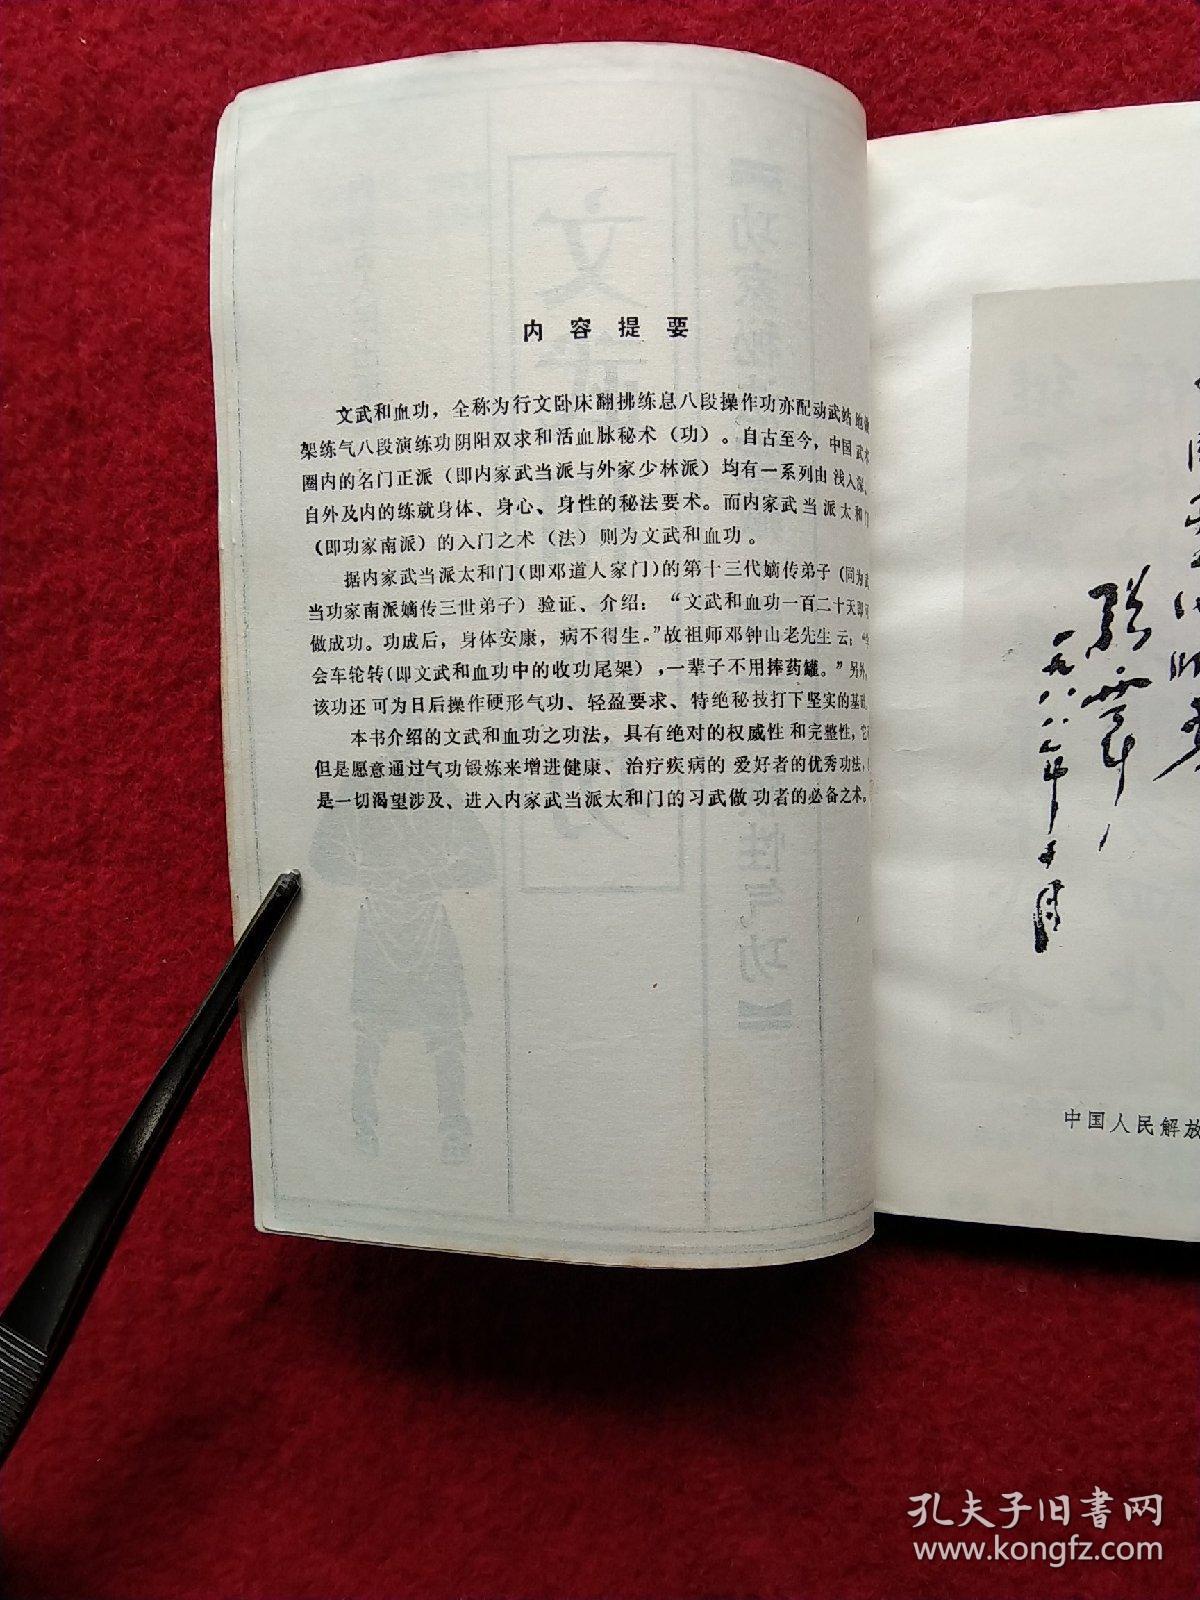 内容提要
文武和血功，全称为行文卧床翻拂练息八段操作功亦配动武站地
架练气八段演练功阴阳双求和活血脉秘术（功）。自古至今，中国武术
圈内的名门正派（即内家武当派与外家少林派）均有一系列由浅入深、
自外及内的练就身体、身心、身性的秘法要术。而内家武当派太和门
（即功家南派）的入门之术（法）则为文武和血功。
据内家武当派太和门(即邓道人家门)的第十三代嫡传弟子(同为武
当功家南派嫡传三世弟子）验证、介绍：“文武和血功一百二十天即可
做成功。功成后，身体安康，病不得生。”故祖师邓钟山老先生云：“
会车轮转(即文武和血功中的收功尾架)，一辈子不用捧药罐。”另外，
该功还可为日后操作硬形气功、轻盈要求、特绝秘技打下坚实的基础。
本书介绍的文武和血功之功法，具有绝对的权威性和完整性，它
但是愿意通过气功锻炼来增进健康、治疗疾病的爱好者的优秀功法，
是一切渴望涉及、进入内家武当派太和门的习武做功者的必备之术。
一九八八年五月
中国人民解放
孔夫子旧书网
www.kongfz.com